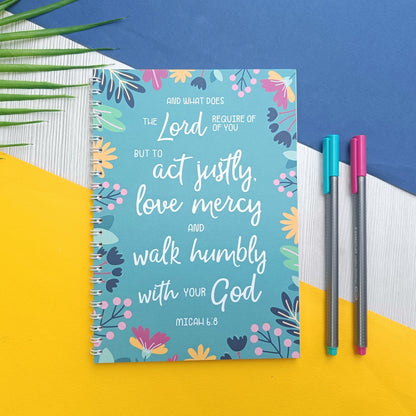 AND WHAT DOES
THE Lord REQUIRE OF
OF YOU
BUT TO
act justly,
love mercy
AND
walk humbly
with YOUR God
MICAH 6:8